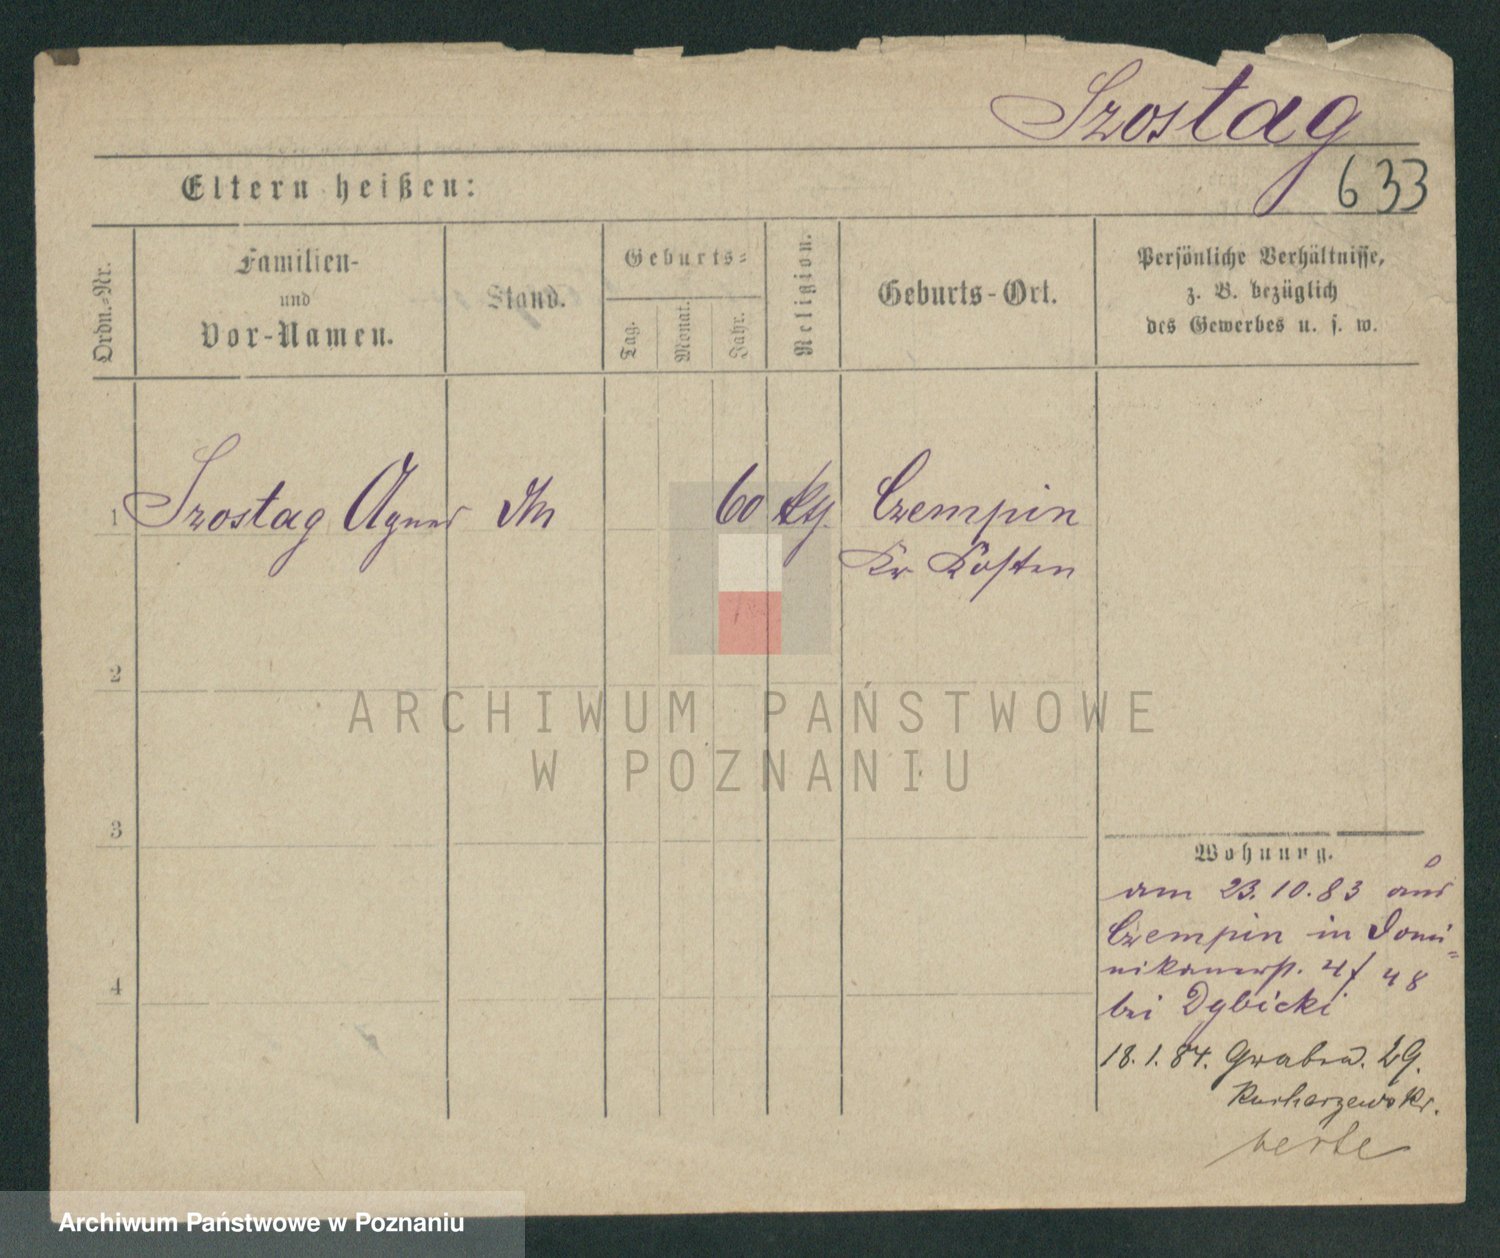 Szostag
633
Eltern heißen:
Ordn.-Nr.
Familien-
und
Vor-Namen.
Stand.
Geburts-
Tag.
Monat.
Jahr.
Religion.
Geburts-Ort.
Persönliche Verhältnisse,
z. B. bezüglich
des Gewerbes u. s. w.
1 Szostag Agnes 60 Czempin
Kr Kosten
2
3
4
Wohnung.
am 23.10.83 aus
Czempin in Domi-
nikanerst. 4/ 48
bei Dybicki
18.1.84. Graben. 29.
ARCHIWUM PAŃSTWOWE
W POZNANIU
Archiwum Państwowe w Poznaniu